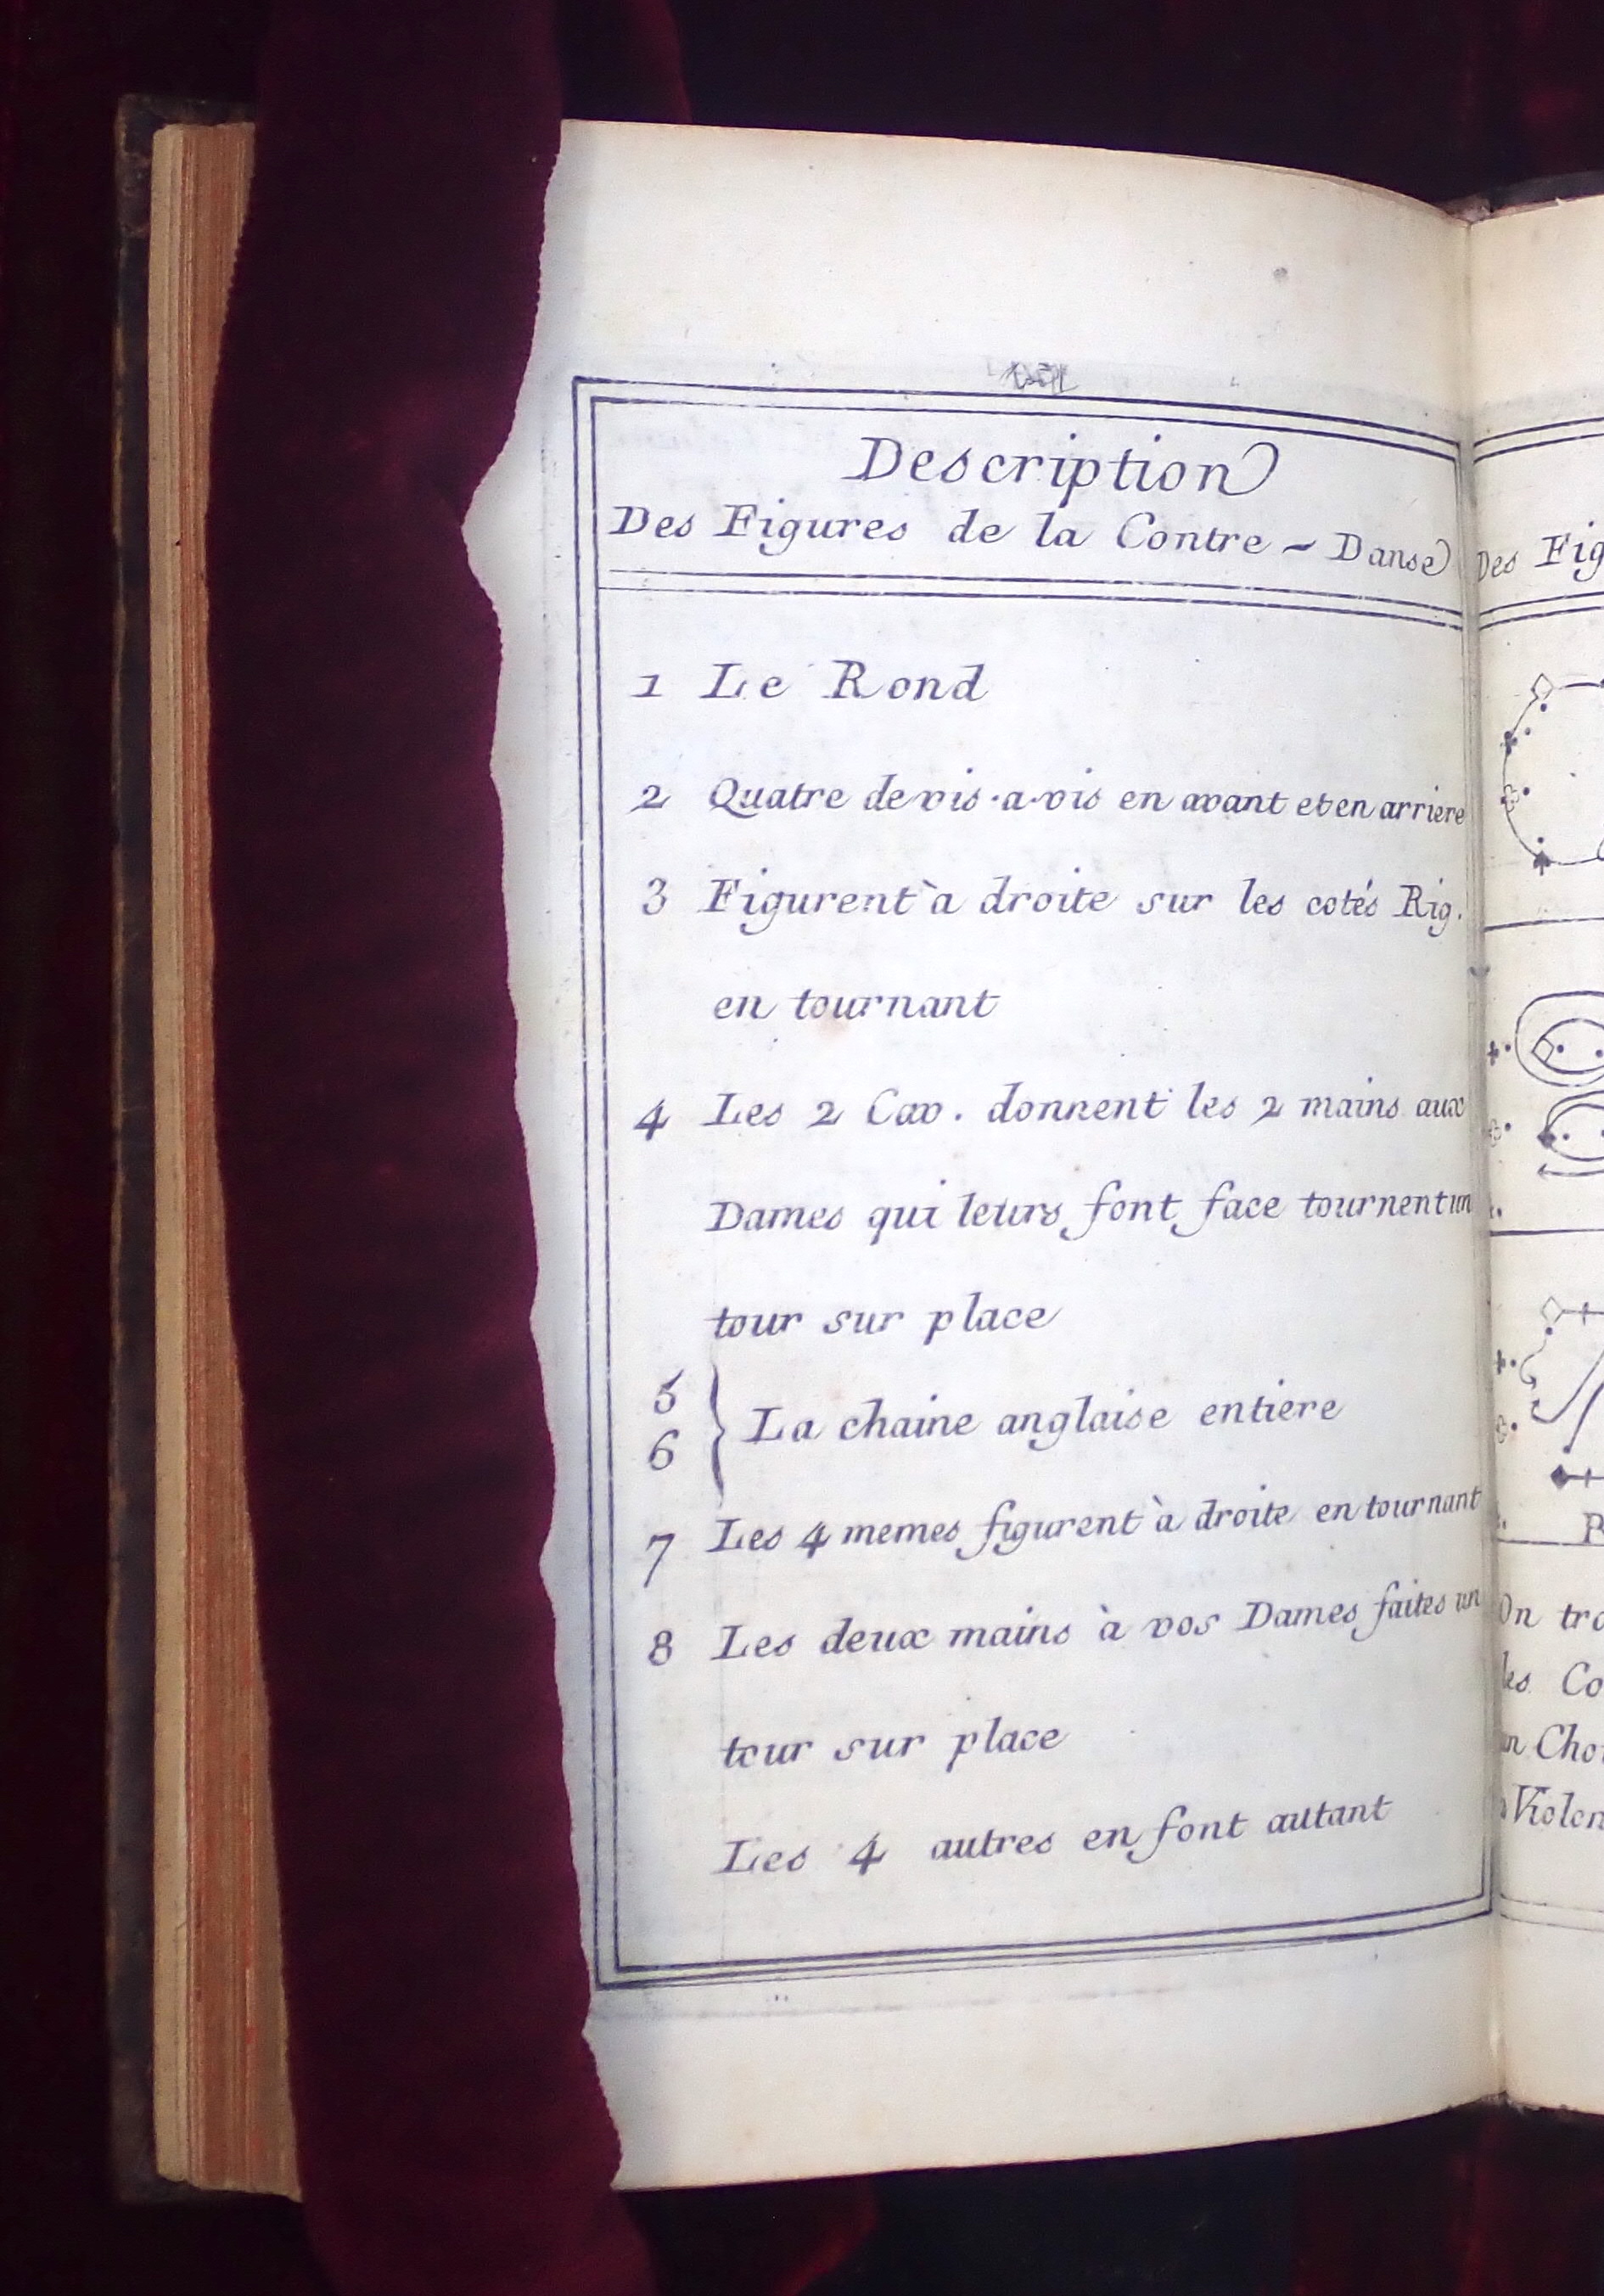 Description
Des Figures de la Contre - Danse
1 Le Rond
2 Quatre de vis-a-vis en avant et en arriere
3 Figurent à droite sur les cotés Rig.
en tournant
4 Les 2 Cav. donnent les 2 mains aux
Dames qui leurs font face tournent un
tour sur place
5
6 } La chaine anglaise entiere
7 Les 4 memes figurent à droite en tournant
8 Les deux mains à vos Dames faites un
tour sur place
Les 4 autres en font autant
Des Fig
On tro
les Co
un Cho
Violon